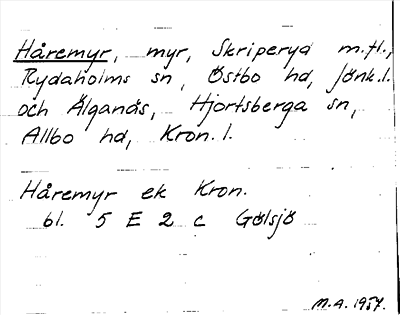 Håremyr, myr, Skriperyd m.fl.,
Rydaholms sn, Östbo hd, Jönk.l.
och Älganäs, Hjortsberga sn,
Allbo hd, Kron.l.
Håremyr ek Kron.
bl. 5 E 2 c Gölsjö
M.A. 1957.